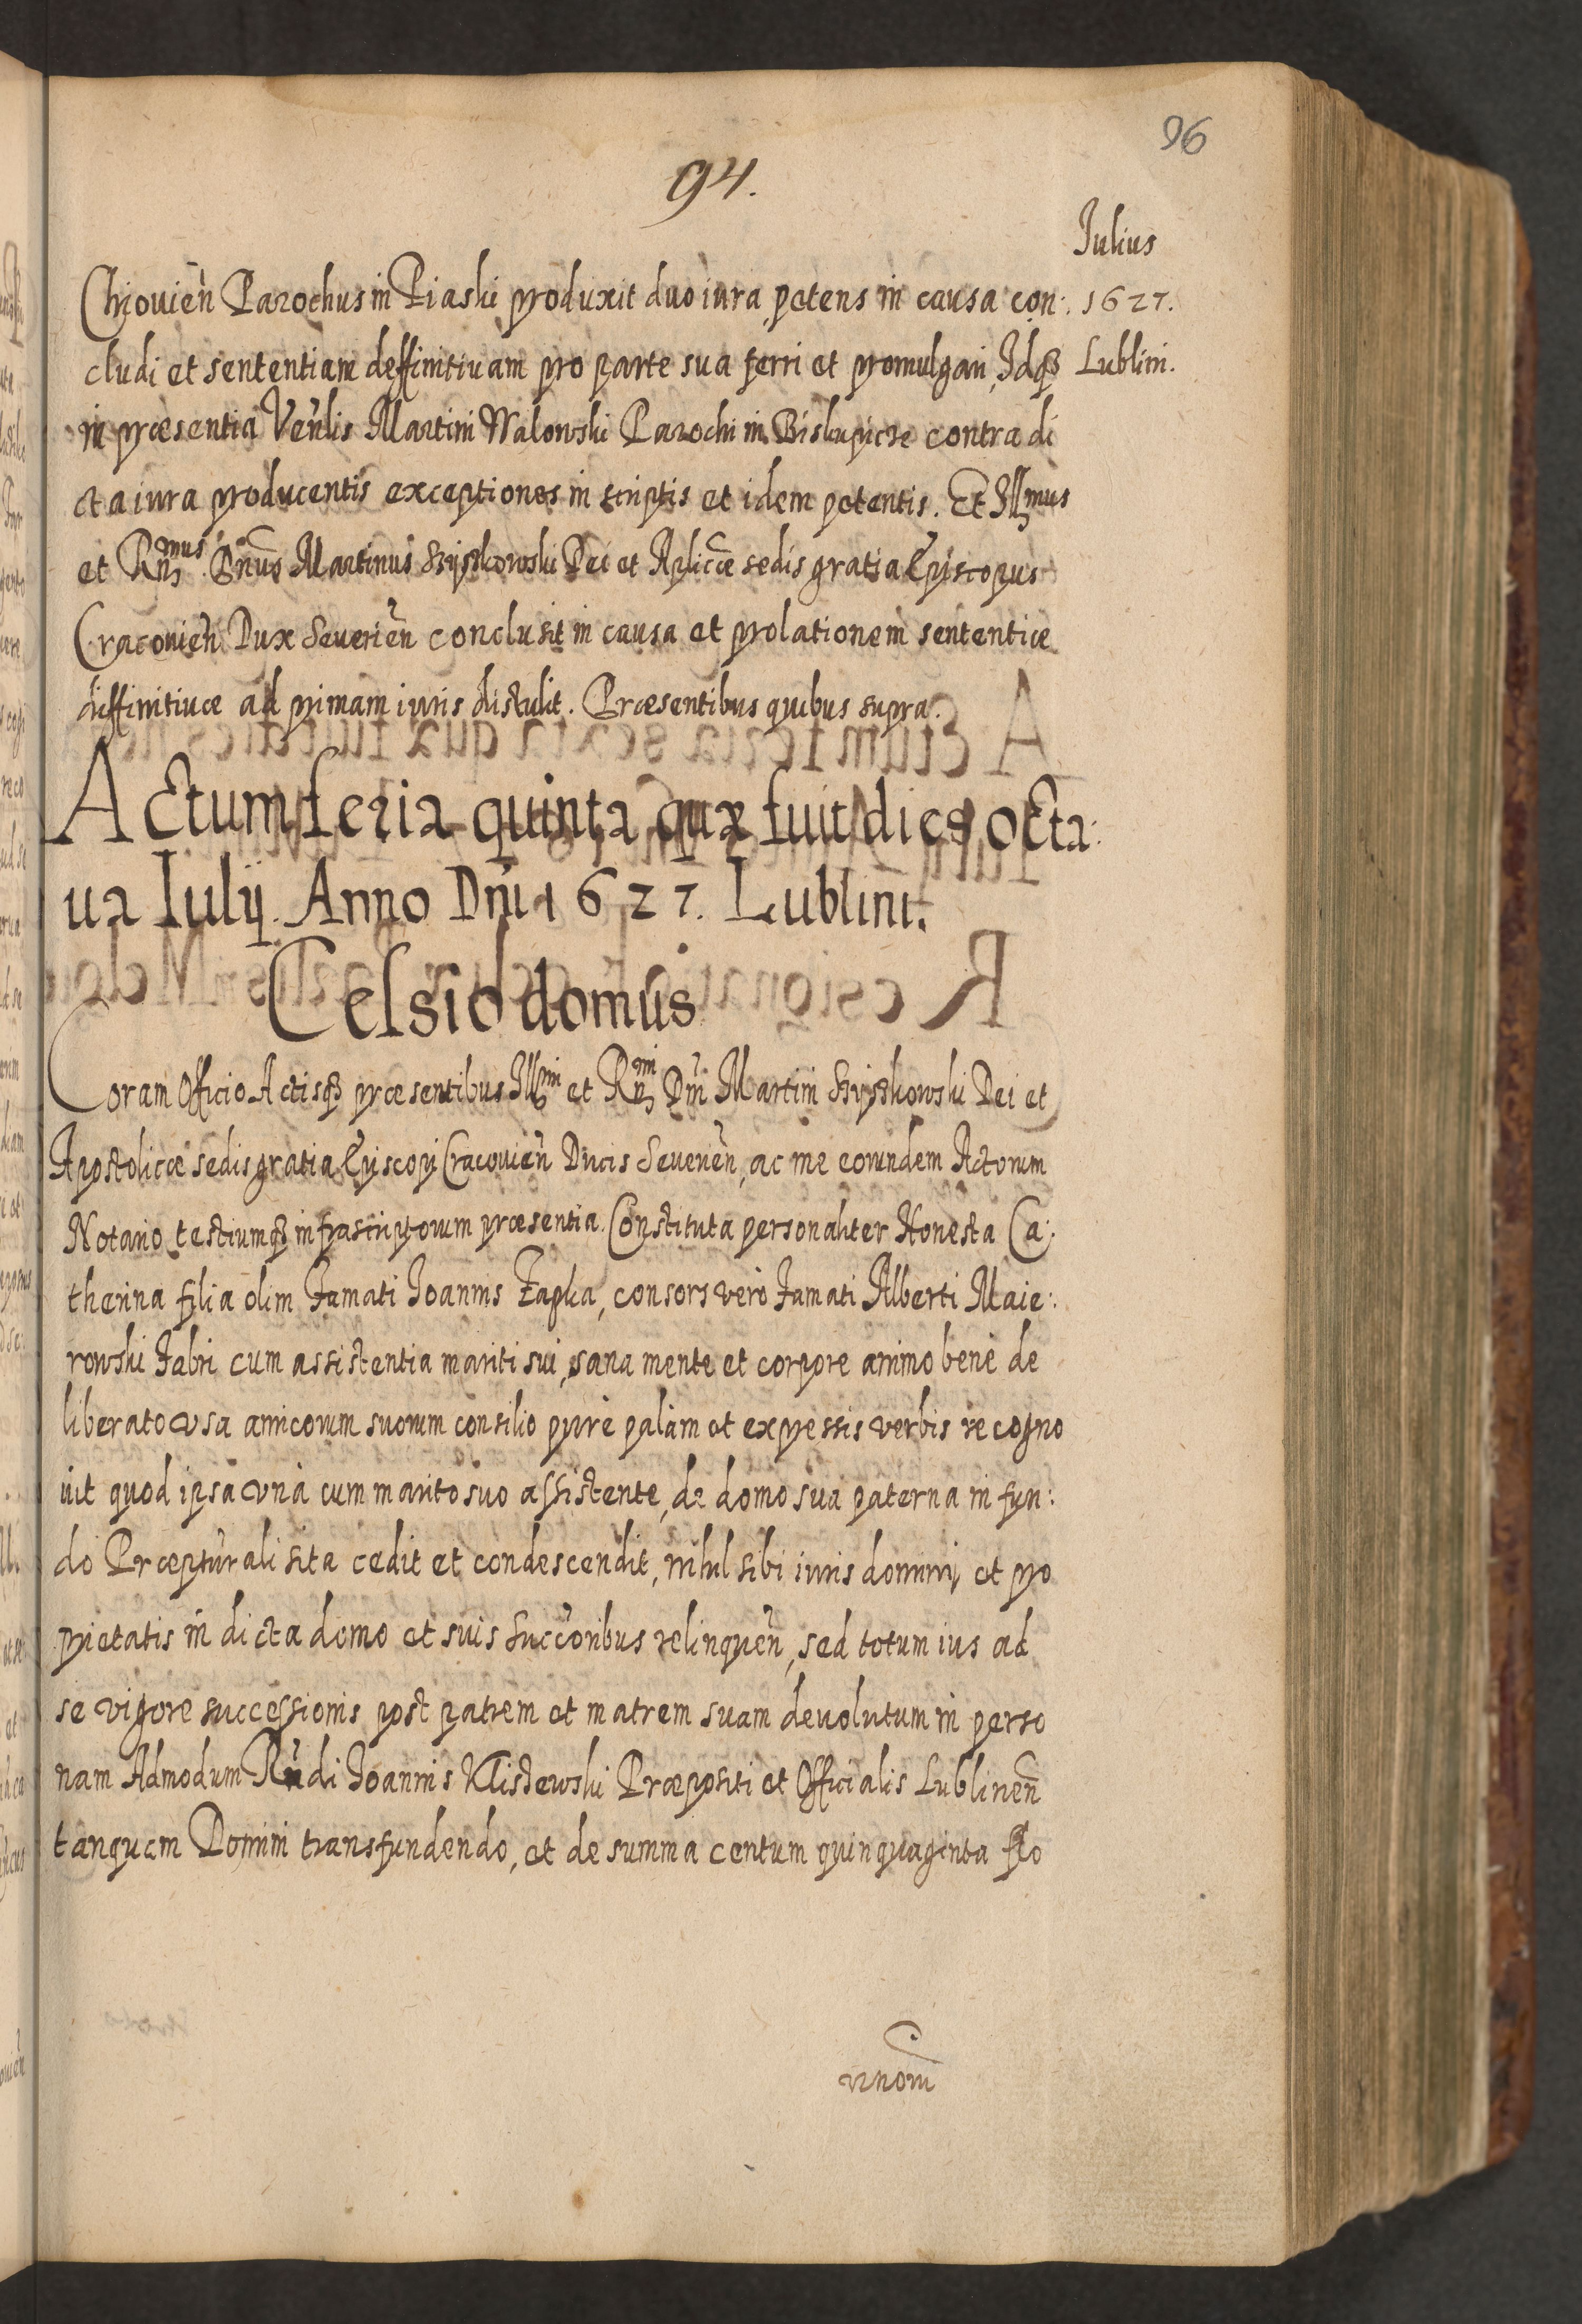 96
94.
Iulius
Chiouien Parochus in Piaski produxit duo iura, petens in causa con: 1627.
cludi et sententiam deffinitiuam pro parte sua ferri et promulgari, Idq3 Lublini.
in præsentia Venlis Martini Walowski Parochi in Biskupice contra di
cta iura producentis exceptiones in scriptis et idem petentis. Et Illmus
et Rmus Dnus Martinus Szyszkowski Dei et Aplicæ sedis gratia Episcopus
Cracouien Dux Seuerien conclusit in causa et prolationem sententiæ
diffinitiuæ ad primam iuris distulit. Præsentibus quibus supra.
Actum feria quinta quæ fuit dies octa:
ua Iulij. Anno Dni 1627. Lublini.
Celsio domus
Coram Officio Actisq3 præsentibus Illmi et Rmi Dni Martini Szyszkowski Dei et
Apostolicæ sedis gratia Episcopi Cracouien Ducis Seuerien, ac me eorundem Actorum
Notario testiumq3 infrascriptorum præsentia. Constituta personaliter Honesta Ca:
therina filia olim Famati Ioannis Zapka, consors vero Famati Alberti Maie:
rowski Fabri cum assistentia mariti sui, sana mente et corpore animo bene de
liberato vsa amicorum suorum consilio pure palàm et expressis verbis recogno
uit quod ipsa vnà cum marito suo assistente, de domo sua paterna in fun:
do Præpturali sita cedit et condescendit, nihil sibi iuris dominij et pro
prietatis in dicta domo et suis succoribus relinquen, sed totum ius ad
se vigore successionis post patrem et matrem suam deuolutum in perso
nam Admodum Rndi Ioannis Klistewski Præpositi et Officialis Lublinen
tanquam Domini transfundendo, et de summa centum quinquaginta flo